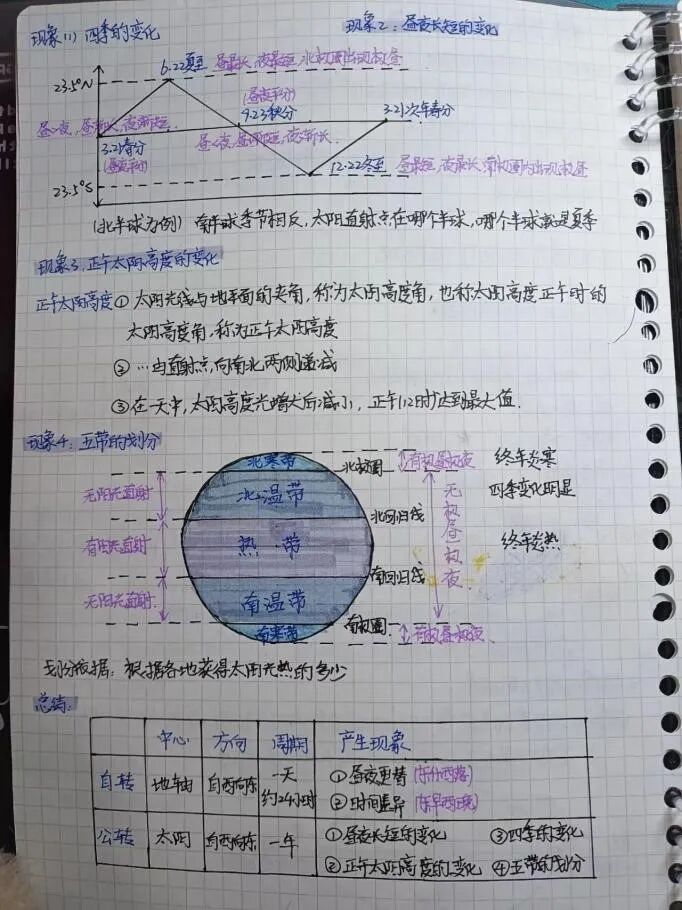 现象(1)四季的变化
现象2:昼夜长短的变化
6.22夏至 昼最长,夜最短,北极圈出现极昼
23.5°N
(昼夜平分)
9.23秋分
3.21次年春分
昼>夜,昼渐长,夜渐短.
昼<夜,昼渐短,夜渐长.
3.21春分
(昼夜平分)
12.22冬至 昼最短,夜最长,南极圈内出现极昼
23.5°S
(北半球为例) 南半球季节相反,太阳直射点在哪个半球,哪个半球就是夏季
现象3.正午太阳高度的变化
正午太阳高度①太阳光线与地平面的夹角,称为太阳高度角,也称太阳高度正午时的
太阳高度角,称为正午太阳高度
②…由直射点向南北两侧递减
③在一天中,太阳高度先增大后减小,正午12时达到最大值.
现象4:五带的划分
北寒带
北极圈
有极昼极夜
终年寒
无阳光直射
北温带
四季变化明显
北回归线
有阳光直射
热带
无极昼极夜.
终年炎热
南回归线
无阳光直射.
南温带
南寒带
南极圈.
有极昼极夜.
划分依据:根据各地获得太阳光热的多少
总结:
中心 方向 周期 产生现象
自转 地轴 自西向东 一天 ①昼夜更替(东升西落)
约24小时 ②时间差异(东早西晚)
公转 太阳 自西向东 一年 ①昼夜长短的变化 ③四季的变化
②正午太阳高度的变化 ④五带的划分